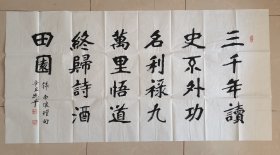 三千年讀
史不外功
名利祿九
萬里悟道
終歸詩酒
田園
錄南懷瑾句